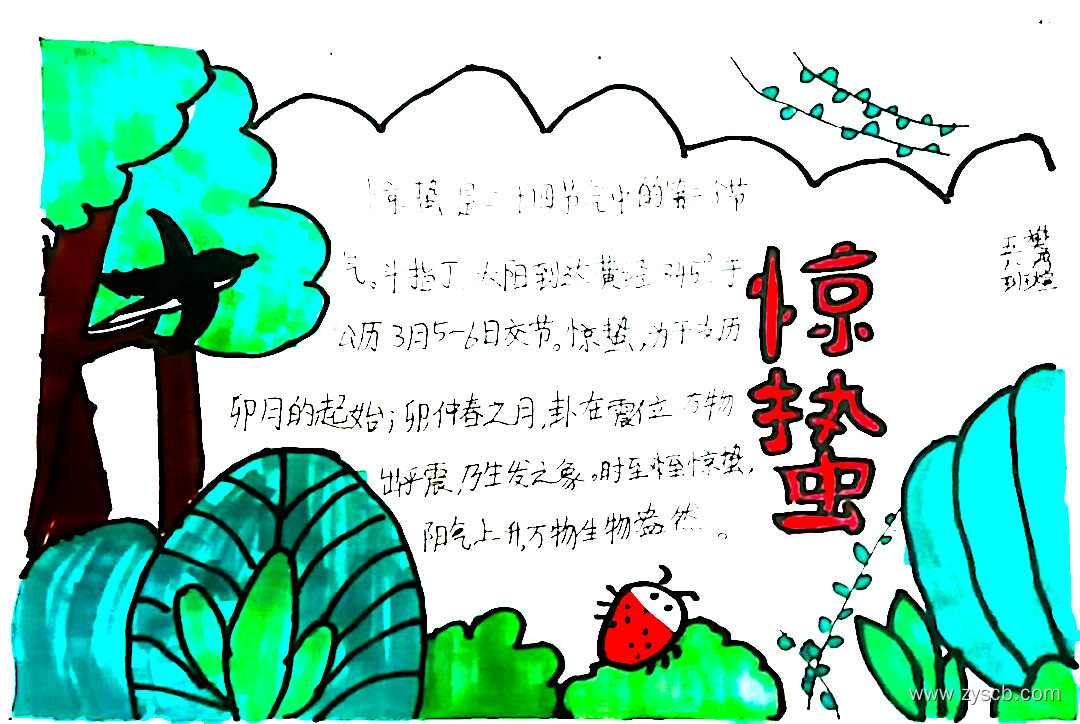 惊蛰是二十四节气中的第三个节
气。斗指丁,太阳到达黄经345°于
公历3月5-6日交节。惊蛰,为干支历
卯月的起始;卯仲春之月,卦在震位 万物
出乎震,乃生发之象。时至惊蛰,
阳气上升,万物生物盎然。
惊
蛰
五六班
www.zyscb.com